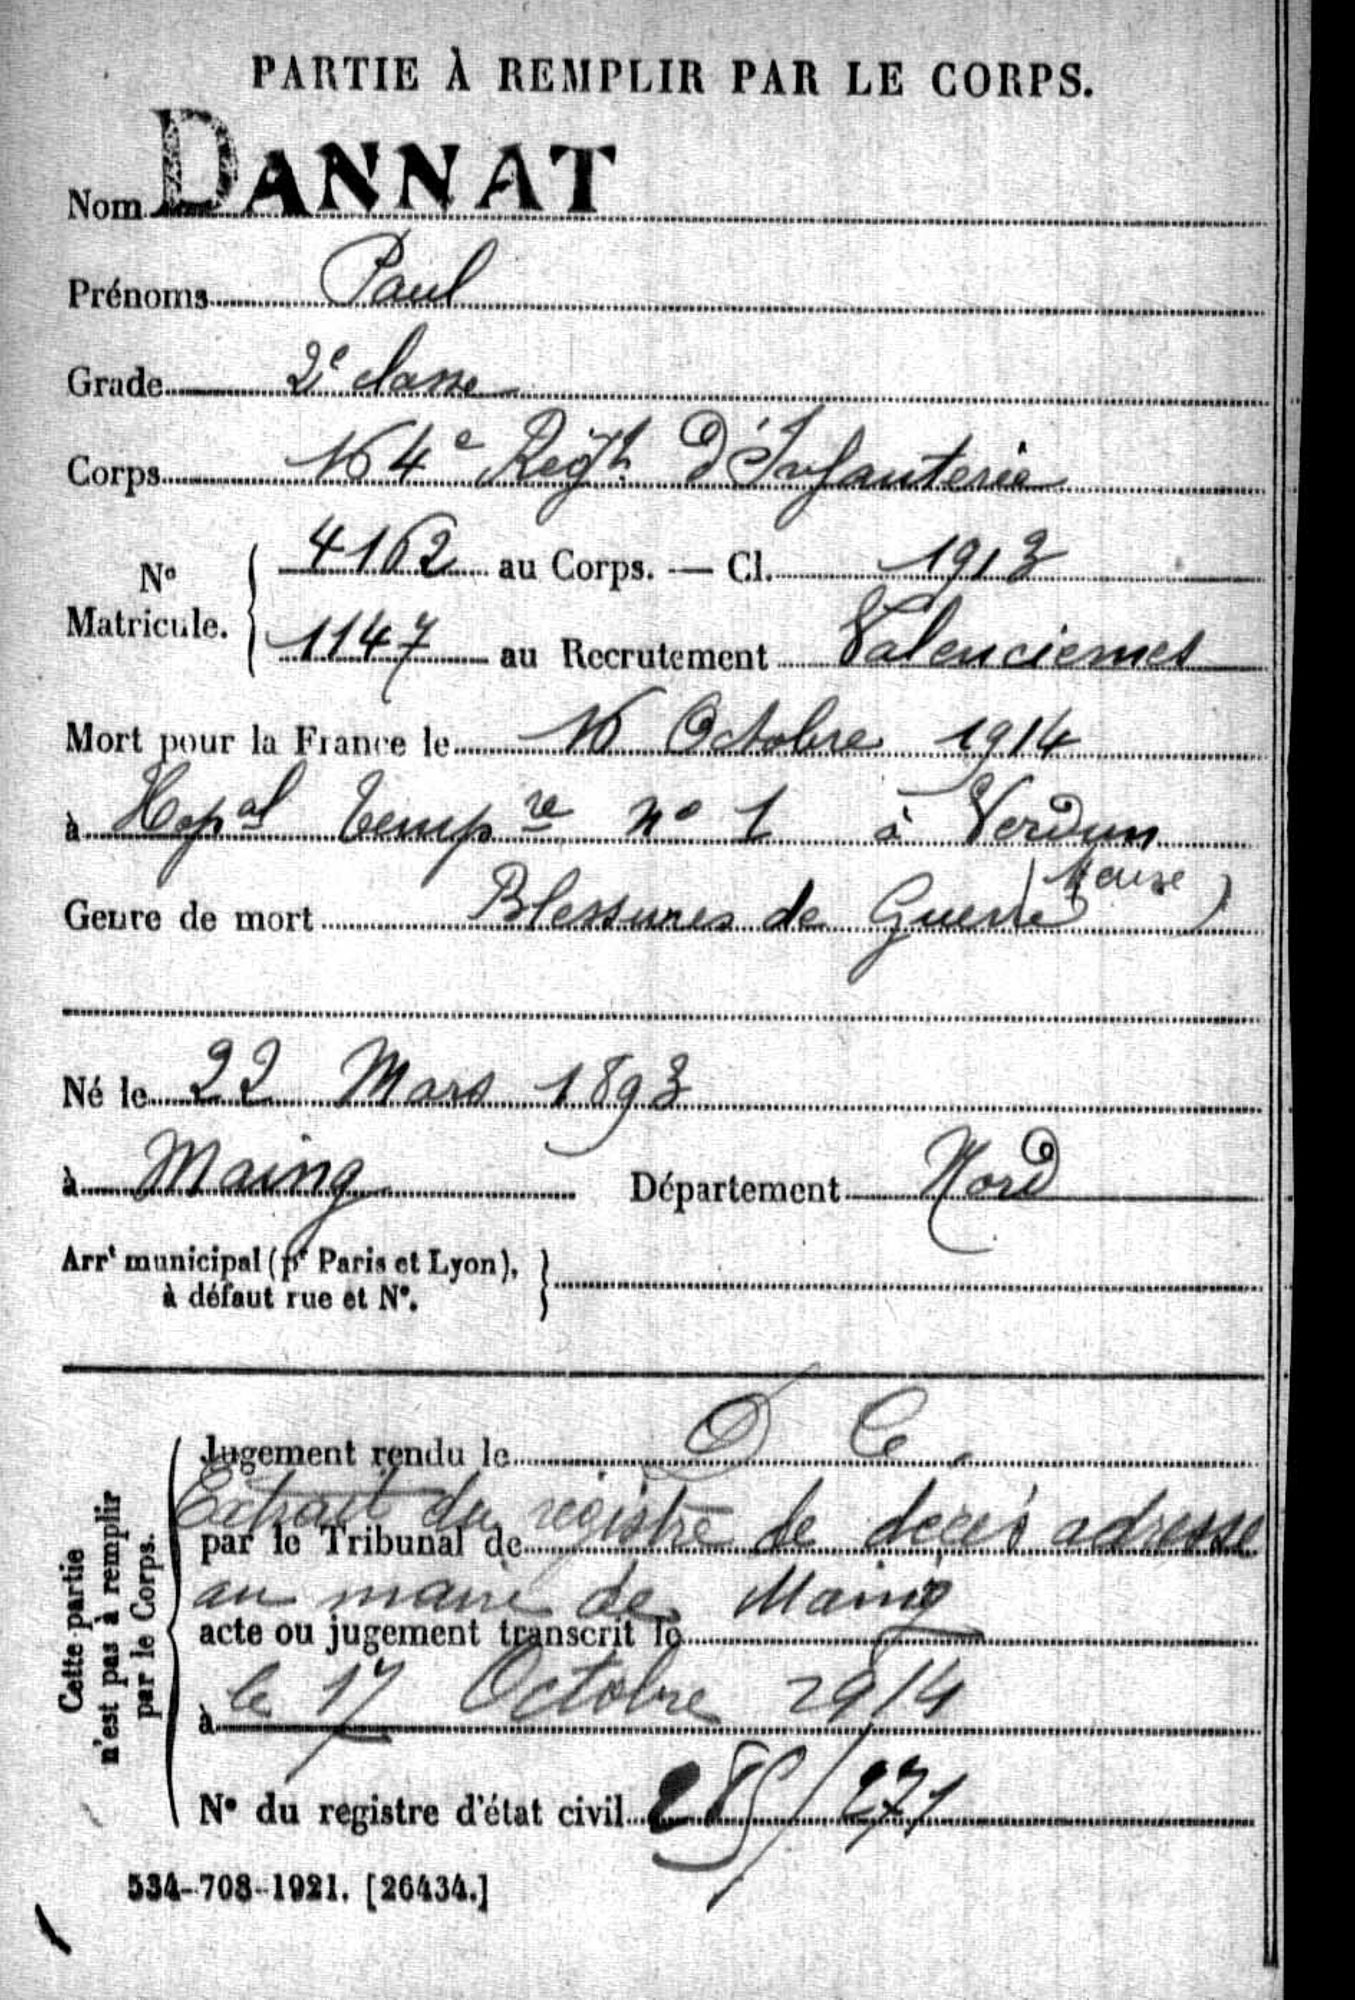 PARTIE À REMPLIR PAR LE CORPS.
Nom DANNAT
Prénoms Paul
Grade 2e classe
Corps 164e Régt d'Infanterie
No Matricule. { 4162 au Corps. — Cl. 1913
1147 au Recrutement Valenciennes
Mort pour la France le 16 Octobre 1914
à Hopal tempre no 1 à Verdun
(Meuse)
Genre de mort Blessures de Guerre
Né le 22 Mars 1893
à Maing Département Nord
Arrt municipal (pr Paris et Lyon), }
à défaut rue et No.
Cette partie
n'est pas à remplir
par le Corps.
Jugement rendu le D C.
Extrait du registre de décès adressé
par le Tribunal de
au maire de Maing
acte ou jugement transcrit le
à le 17 Octobre 1914
No du registre d'état civil 285/271
534-708-1921. [26434.]